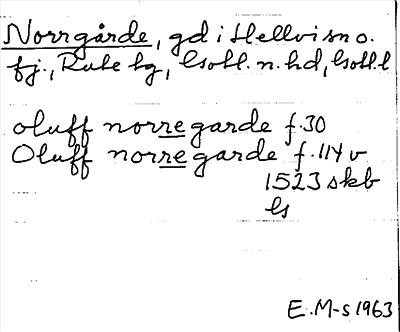 Norrgårde, gd i Hellvi sn o.
fj., Rute tg, Gotl. n. hd, Gotl. l
oluff norregarde f. 30
Oluff norregarde f. 114 v
1523 skb
Gs
E. M-s 1963